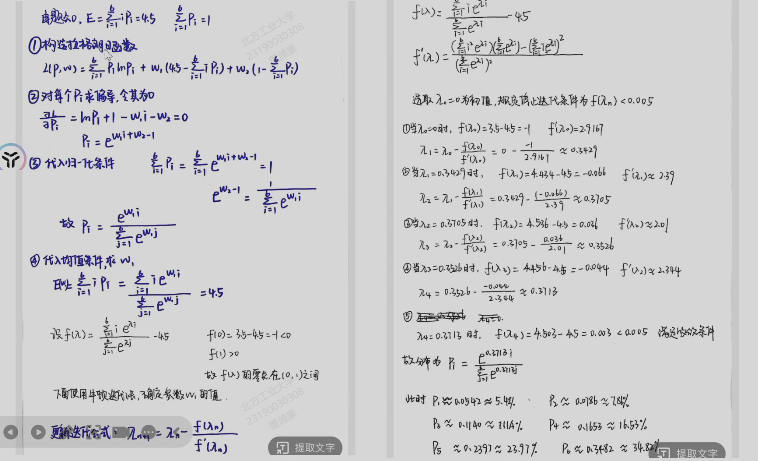 由题知, E=∑_{i=1}^{6} iPi=4.5  ∑_{i=1}^{6} Pi=1
①构造拉格朗日函数
L(p,w)=∑_{i=1}^{6} Pi lnPi + w1(4.5-∑_{i=1}^{6} iPi)+w2(1-∑_{i=1}^{6} Pi)
②对每个Pi求偏导,令其为0
∂L/∂Pi = lnPi+1-w1i-w2=0
Pi=e^{w1i+w2-1}
③代入归一化条件  ∑_{i=1}^{6} Pi = ∑_{i=1}^{6} e^{w1i+w2-1}=1
e^{w2-1}=1/∑_{i=1}^{6} e^{w1i}
故 Pi = e^{w1i}/∑_{j=1}^{6} e^{w1j}
④代入均值条件,求w1
即 ∑_{i=1}^{6} iPi = ∑_{i=1}^{6} ie^{w1i}/∑_{j=1}^{6} e^{w1j} = 4.5
设f(λ)=∑_{i=1}^{6} ie^{λi}/∑_{j=1}^{6} e^{λj} -4.5  f(0)=3.5-4.5=-1<0
f(1)>0
故f(λ)的零点在(0,1)之间
下面使用牛顿迭代法,确定参数w1的值.
迭代公式: λn+1=λn-f(λn)/f'(λn)
f(λ)=∑_{i=1}^{6} ie^{λi}/∑_{i=1}^{6} e^{λi} -4.5
f'(λ)=((∑_{i=1}^{6} i²e^{λi})(∑_{i=1}^{6} e^{λi})-(∑_{i=1}^{6} ie^{λi})²)/(∑_{i=1}^{6} e^{λi})²
选取λ0=0为初值, 规定停止迭代条件为f(λn)<0.005
①当λ0=0时, f(λ0)=3.5-4.5=-1  f'(λ0)=2.9167
λ1=λ0-f(λ0)/f'(λ0)=0-(-1)/2.9167≈0.3429
②当λ1=0.3429时, f(λ1)=4.434-4.5=-0.066  f'(λ1)≈2.39
λ2=λ1-f(λ1)/f'(λ1)=0.3429-(-0.066)/2.39≈0.3705
③当λ2=0.3705时, f(λ2)=4.536-4.5=0.036  f'(λ2)≈2.01
λ3=λ2-f(λ2)/f'(λ2)=0.3705-0.036/2.01≈0.3526
④当λ3=0.3526时, f(λ3)=4.456-4.5=-0.044  f'(λ3)≈2.344
λ4=0.3526-(-0.044)/2.344≈0.3713
⑤
λ4=0.3713时, f(λ4)=4.503-4.5=0.003<0.005 满足条件
故分布为 Pi=e^{0.3713i}/∑_{j=1}^{6} e^{0.3713j}
此时 P1≈0.0542≈5.4%  P2≈0.0786≈7.86%
P3≈0.1140≈11.4%  P4≈0.1653≈16.53%
P5≈0.2397≈23.97%  P6≈0.3482≈34.82%
提取文字
提取文字